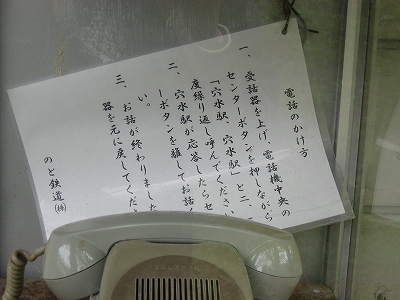 電話のかけ方
一、受話器を上げ、電話機中央の
センターボタンを押しながら
「穴水駅、穴水駅」と二、
度繰り返し呼んでください
二、穴水駅が応答したらセ
ーボタンを離してお話く
い。
三、お話が終わりました
器を元に戻してくだ
のと鉄道㈱